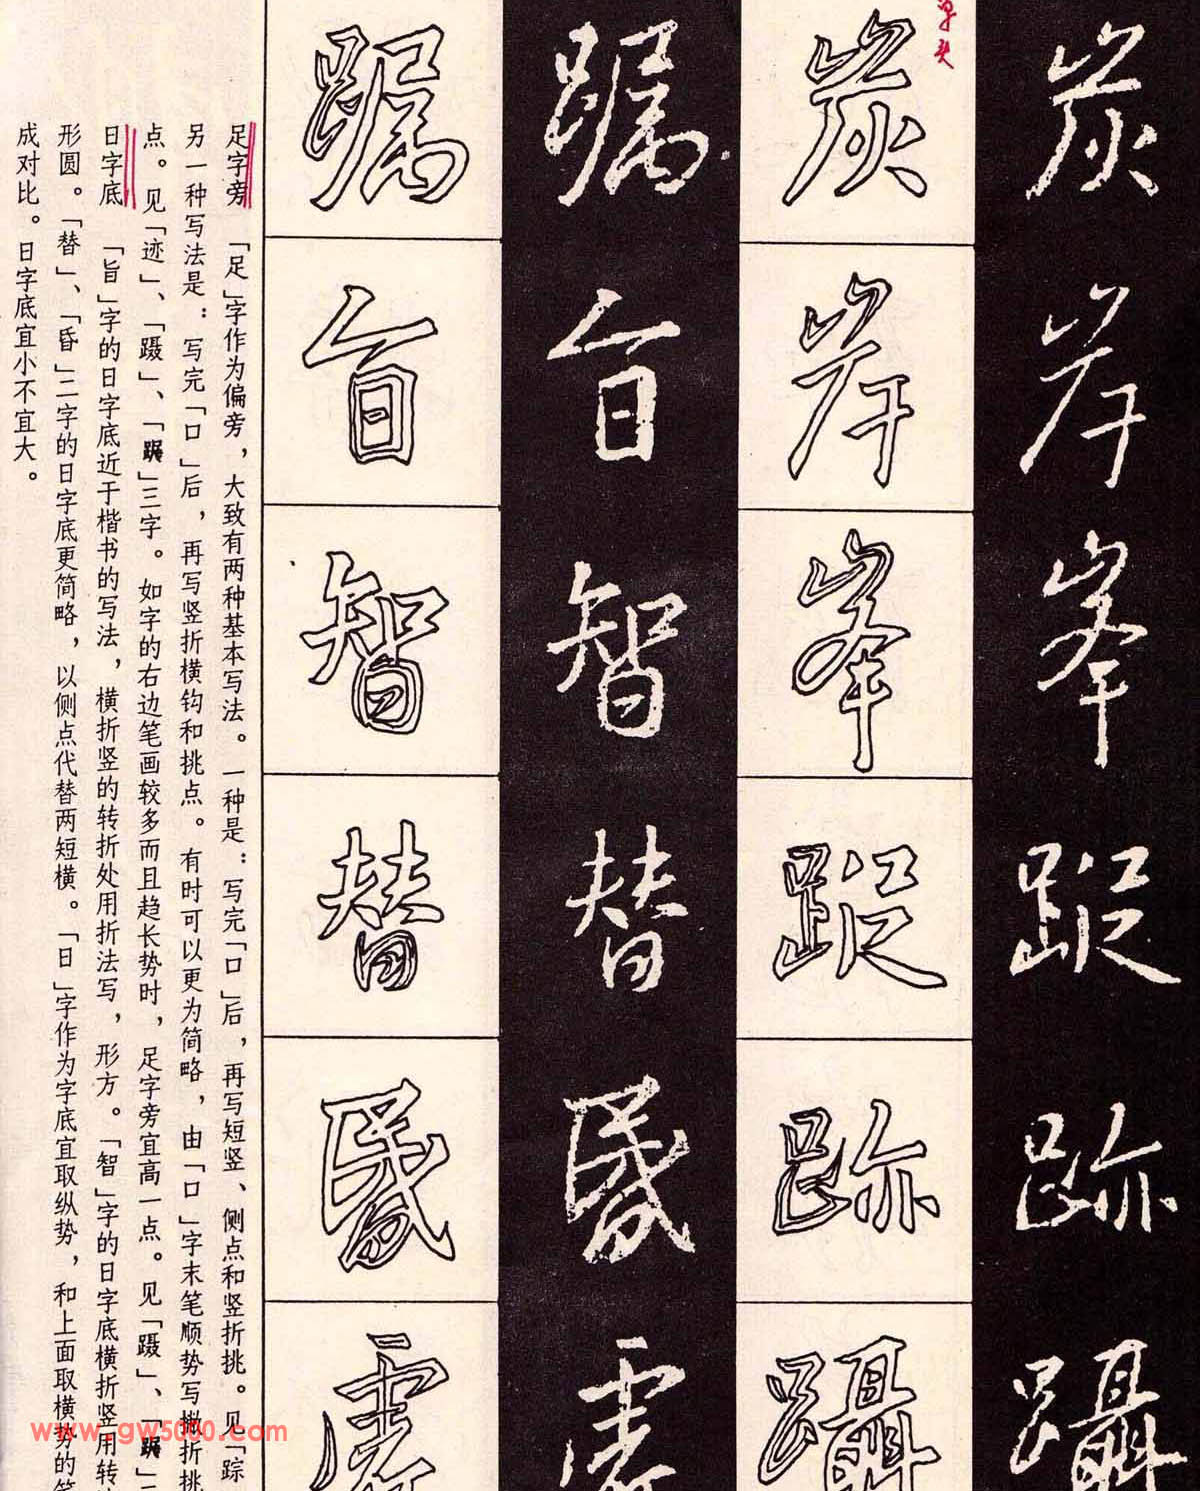 炭岸峯蹤跡躡
炭岸峯蹤跡躡
旨智替昬
旨智替昬
足字旁　「足」字作为偏旁，大致有两种基本写法。一种是：写完「口」后，再写短竖、侧点和竖折挑。见「踪
另一种写法是：写完「口」后，再写竖折横钩和挑点。有时可以更为简略，由「口」字末笔顺势写撇折挑
点。见「迹」、「蹑」、「」三字。如字的右边笔画较多而且趋长势时，足字旁宜高一点。见「蹑」、「」
日字底　「旨」字的日字底近于楷书的写法，横折竖的转折处用折法写，形方。「智」字的日字底横折竖用转
形圆。「替」、「昏」二字的日字底更简略，以侧点代替两短横。「日」字作为字底宜取纵势，和上面取横势的
成对比。日字底宜小不宜大。
www.gw5000.com